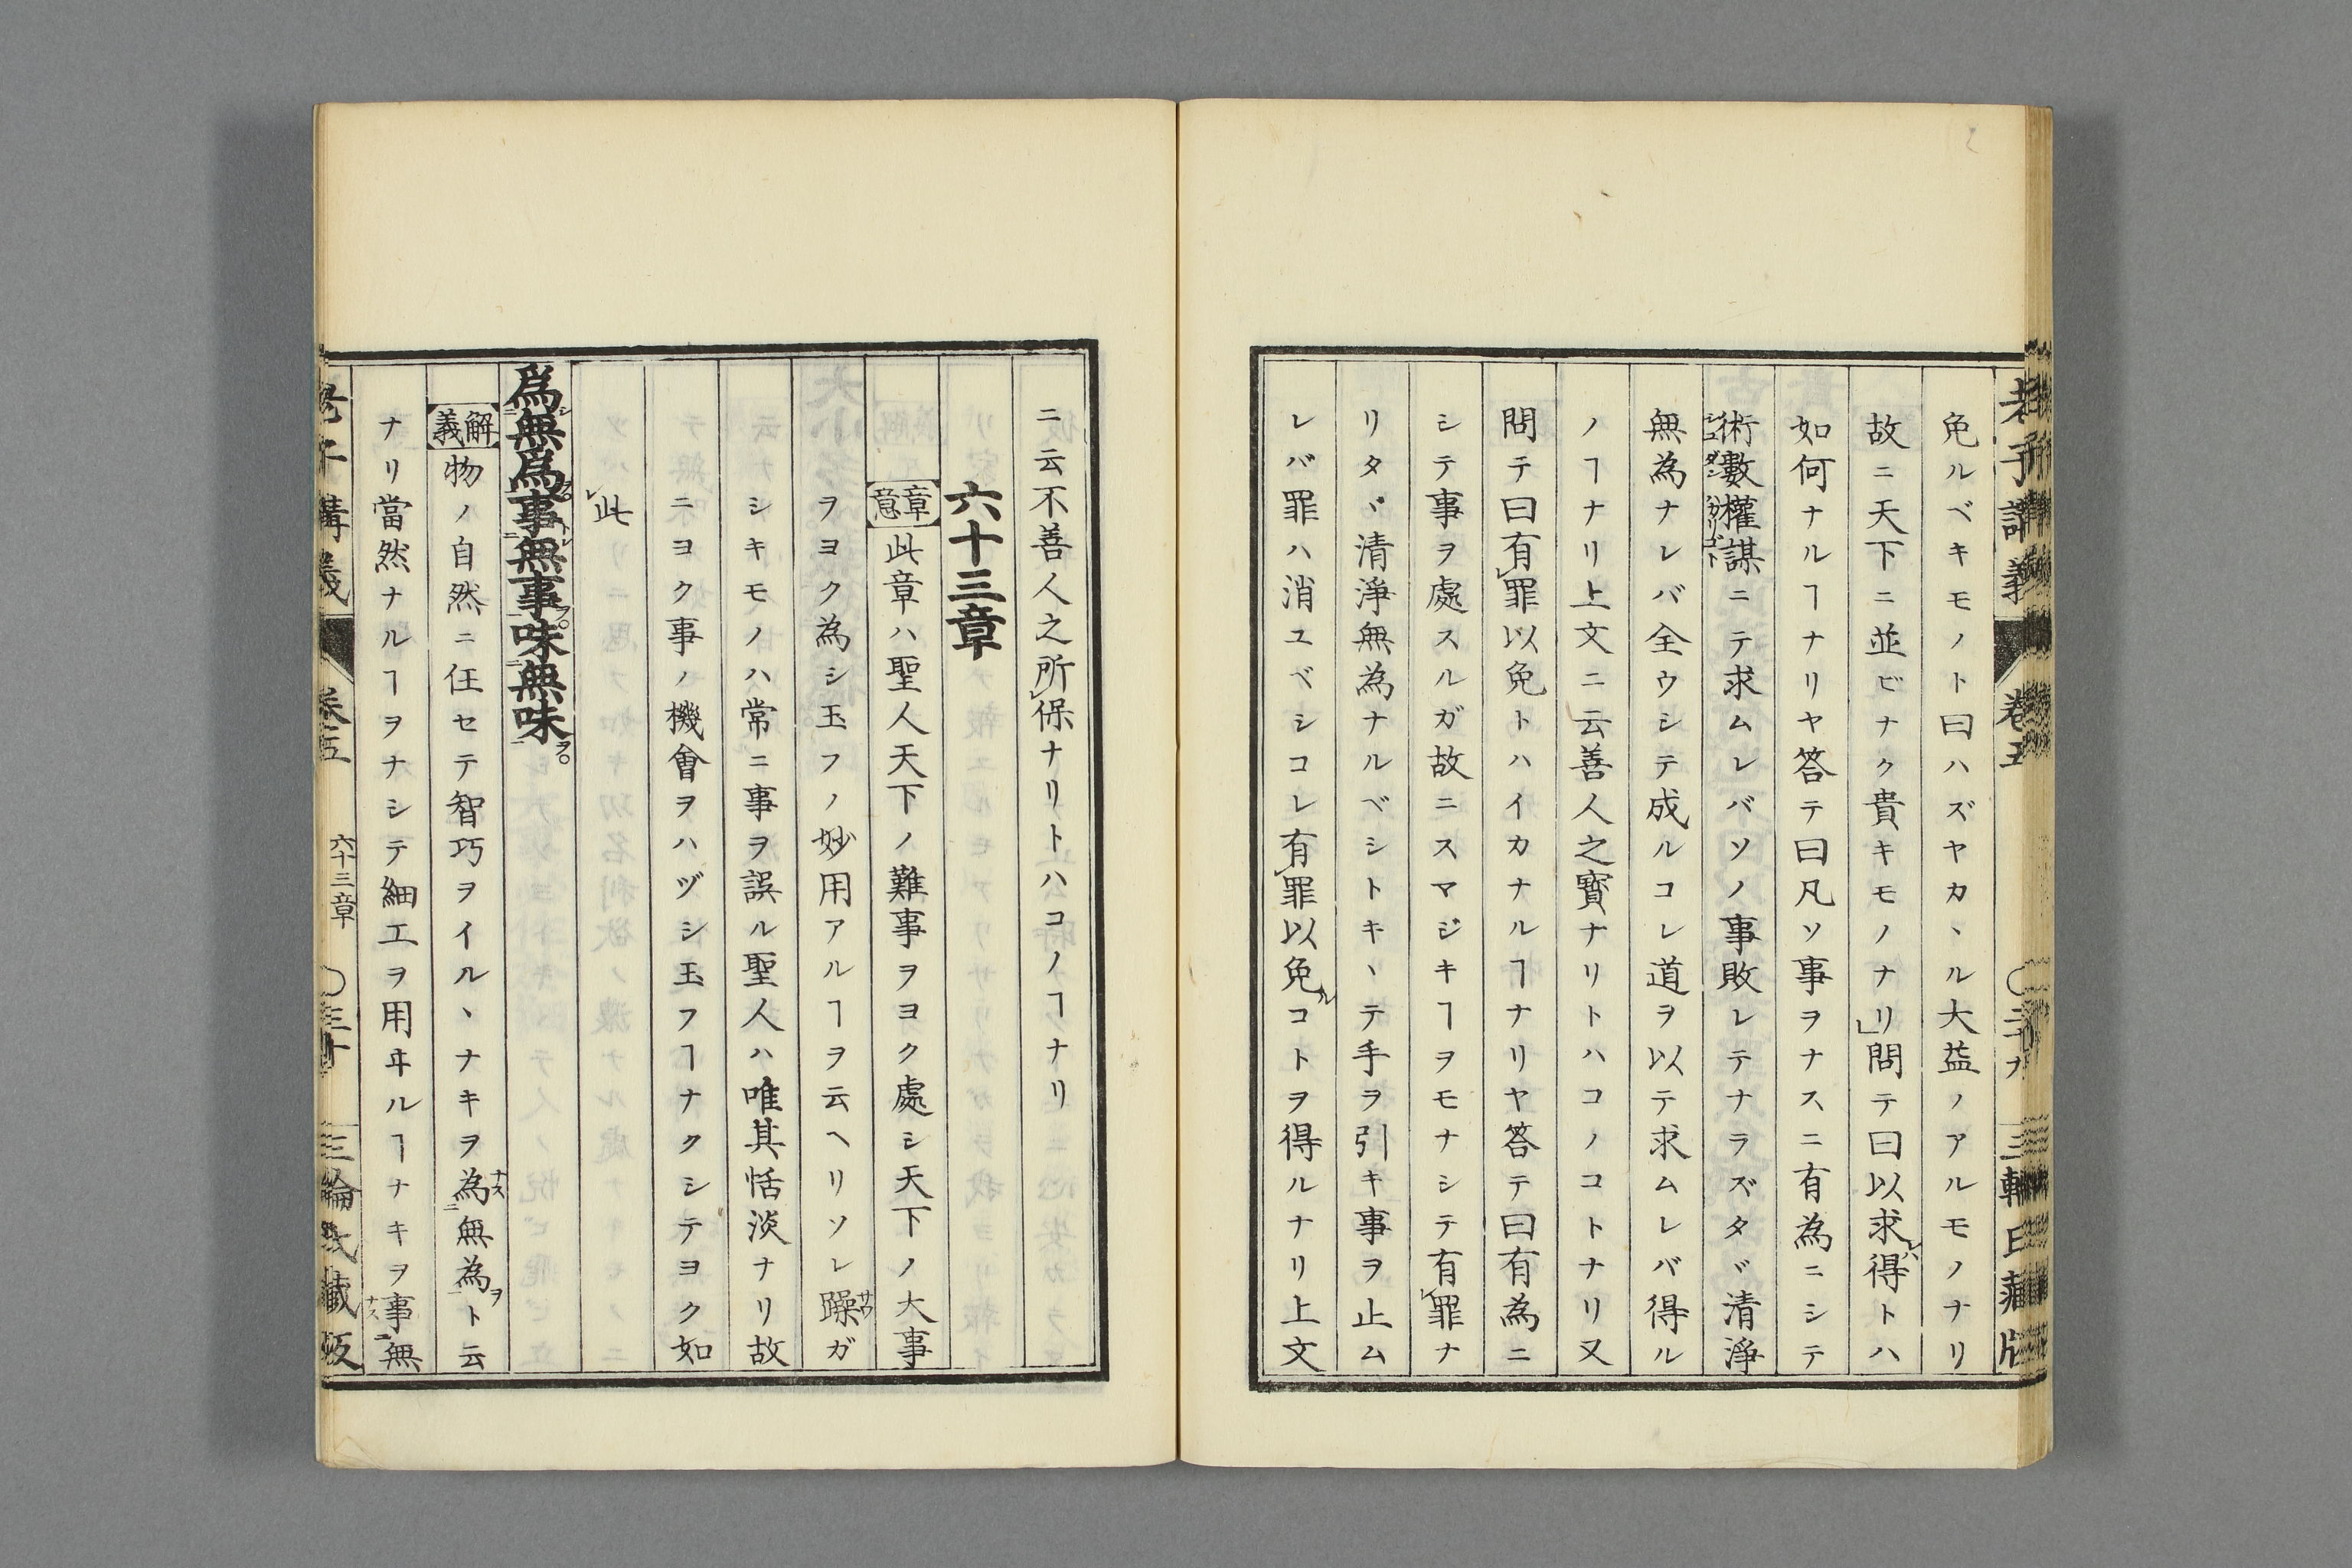 免ルベキモノト曰ハズヤカヽル大益ノアルモノナリ
故ニ天下ニ並ビナク貴キモノナリ」問テ曰以求レバ得トハ
如何ナルヿナリヤ答テ曰凡ソ事ヲナスニ有為ニシテ
術數權謀ニテ求ムレバソノ事敗レテナラズタヾ清淨
無為ナレバ全ウシテ成ルコレ道ヲ以テ求ムレバ得ル
ノヿナリ上文ニ云善人之寶ナリトハコノコトナリ又
問テ曰有レ罪以免トハイカナルヿナリヤ答テ曰有為ニ
シテ事ヲ處スルガ故ニスマジキヿヲモナシテ有レ罪ナ
リタヾ清淨無為ナルベシトキヽテ手ヲ引キ事ヲ止ム
レバ罪ハ消ユベシコレ有レ罪以免ルコトヲ得ルナリ上文
ニ云不善人之所レ保ナリトハコノヿナリ
六十三章
章意 此章ハ聖人天下ノ難事ヲヨク處シ天下ノ大事
ヲヨク為シ玉フノ妙用アルヿヲ云ヘリソレ躁ガ
シキモノハ常ニ事ヲ誤ル聖人ハ唯其恬淡ナリ故
ニヨク事ノ機會ヲハヅシ玉フヿナクシテヨク如
レ此
爲シ二無爲ヲ一。事トシ二無事ヲ一。味フ二無味ヲ一。
解義 物ノ自然ニ任セテ智巧ヲイルヽナキヲ為ナス二無為ヲ一ト云
ナリ當然ナルヿヲナシテ細工ヲ用ヰルヿナキヲ事ナス二無
老子講義 卷五 六十三章 〇三十 三輪氏藏版